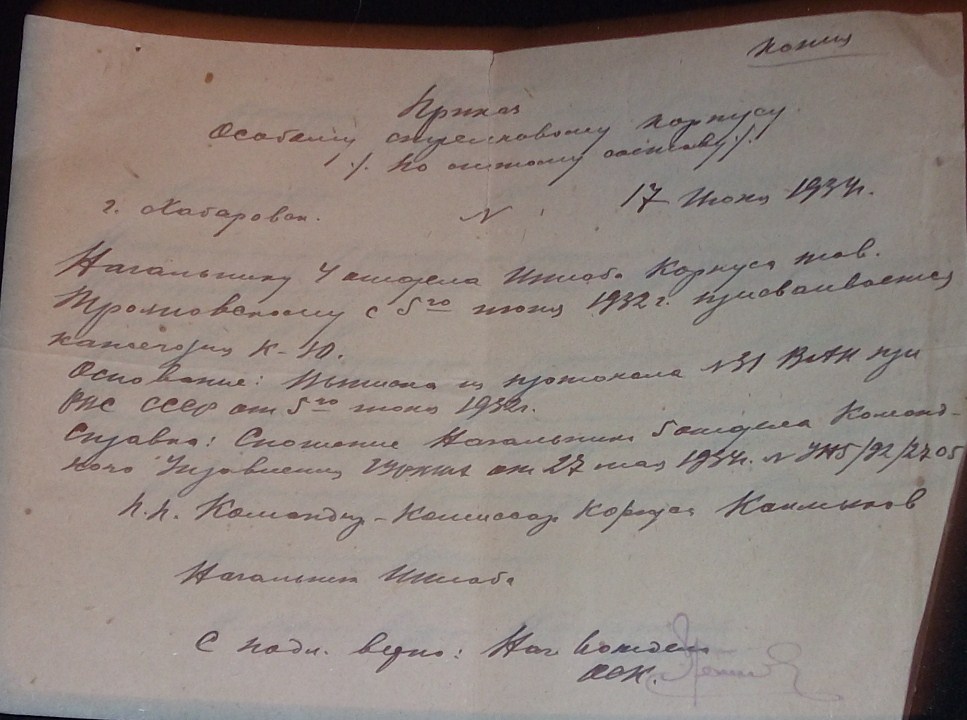 Копия
Приказ
Особому стрелковому корпусу
./. По личному составу ./.
г. Хабаровск. N 17 Июня 1934г.
Начальнику 4 отдела Штаба Корпуса тов.
с 5го июня 1932г. присваивается
категория К-10.
Основание: Выписка из протокола №31 ВАК при
РВС СССР от 5го июня 1932г.
Справка: Сношение Начальника 5 отдела Команд-
ного Управления от 27 мая 1934г. N
п.п. Командир-Комиссар Корпуса Калмыков
Начальник Штаба
С подл. верно: Нач
ОСК.